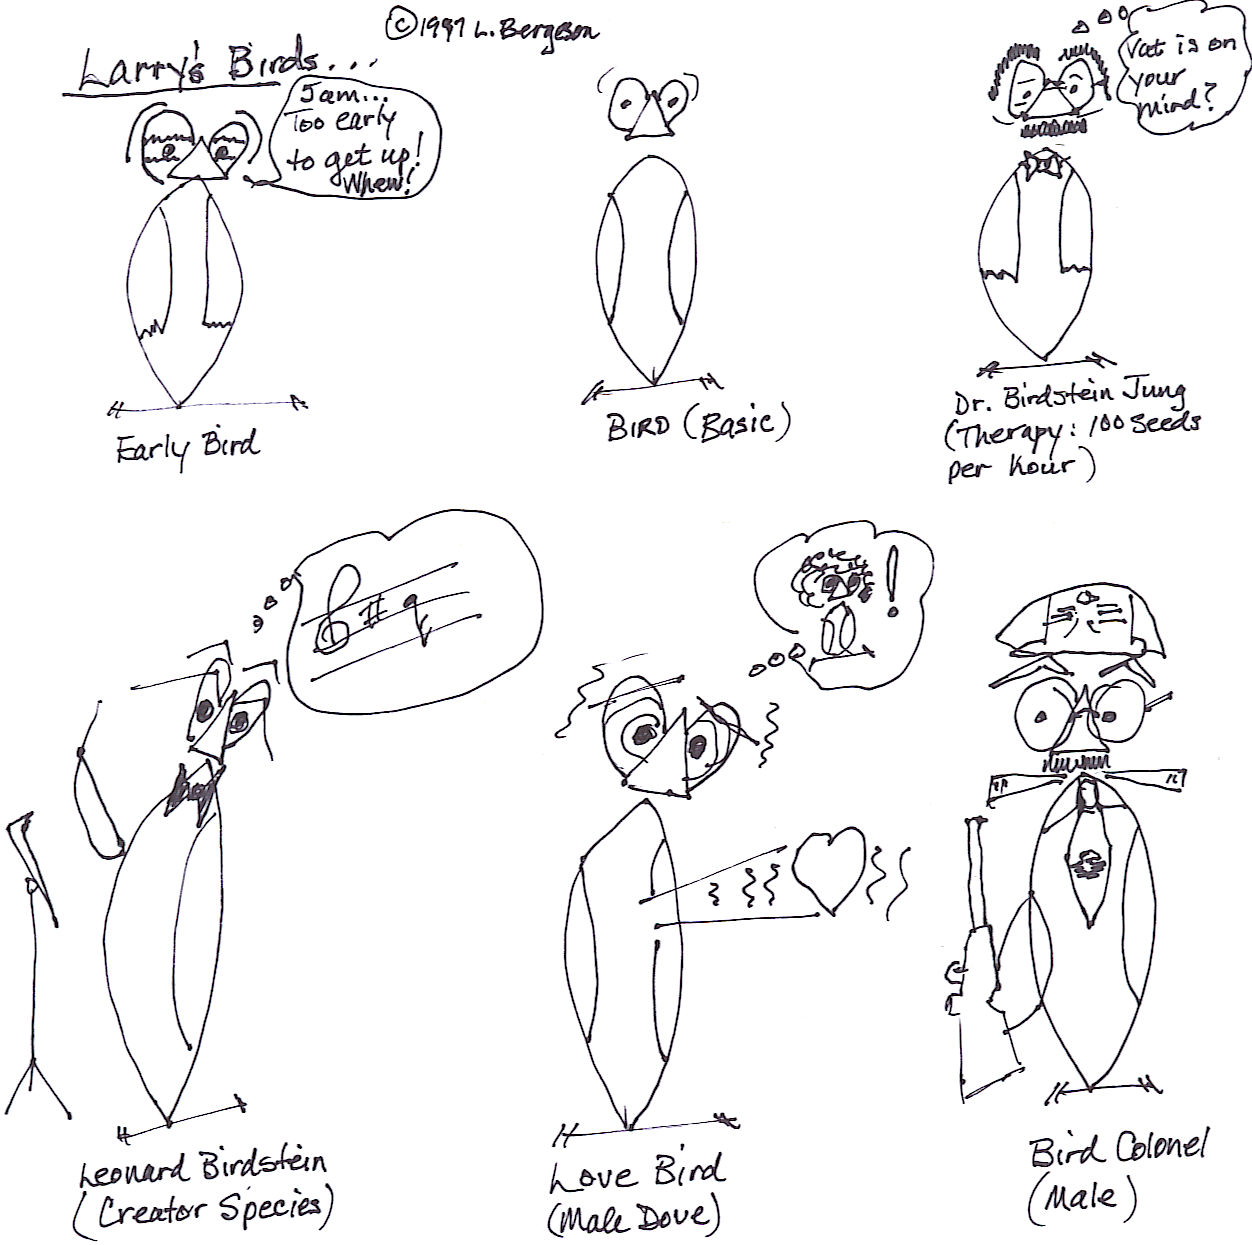 ©1997 L. Bergeson
Larry's Birds...
5am...
Too early
to get up!
Whew!
Vat is on
your
mind?
Early Bird
BIRD (Basic)
Dr. Birdstein Jung
(Therapy: 100 Seeds
per hour)
!
Leonard Birdstein
(Creator Species)
Love Bird
(Male Dove)
Bird Colonel
(Male)